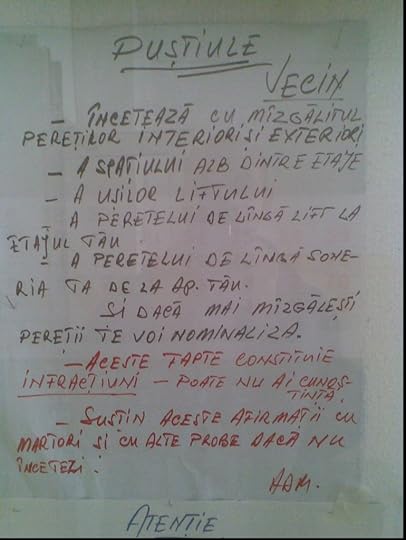 PUȘTIULE
VECIN
- ÎNCETEAZĂ CU MÎZGĂLITUL
PEREȚILOR INTERIORI ȘI EXTERIORI
- A SPAȚIULUI ALB DINTRE ETAJE
- A UȘILOR LIFTULUI
A PERETELUI DE LÎNGĂ LIFT LA
ETAJUL TĂU
- A PERETELUI DE LÎNGĂ SONE-
RIA TA DE LA AP. TĂU.
ȘI DACĂ MAI MÎZGĂLEȘTI
PEREȚII TE VOI NOMINALIZA.
- ACESTE FAPTE CONSTITUIE
INFRACȚIUNI - POATE NU AI CUNOȘ-
TINȚĂ.
- SUSȚIN ACESTE AFIRMAȚII CU
MARTORI ȘI CU ALTE PROBE DACĂ NU
ÎNCETEZI!
ADM.
ATENȚIE